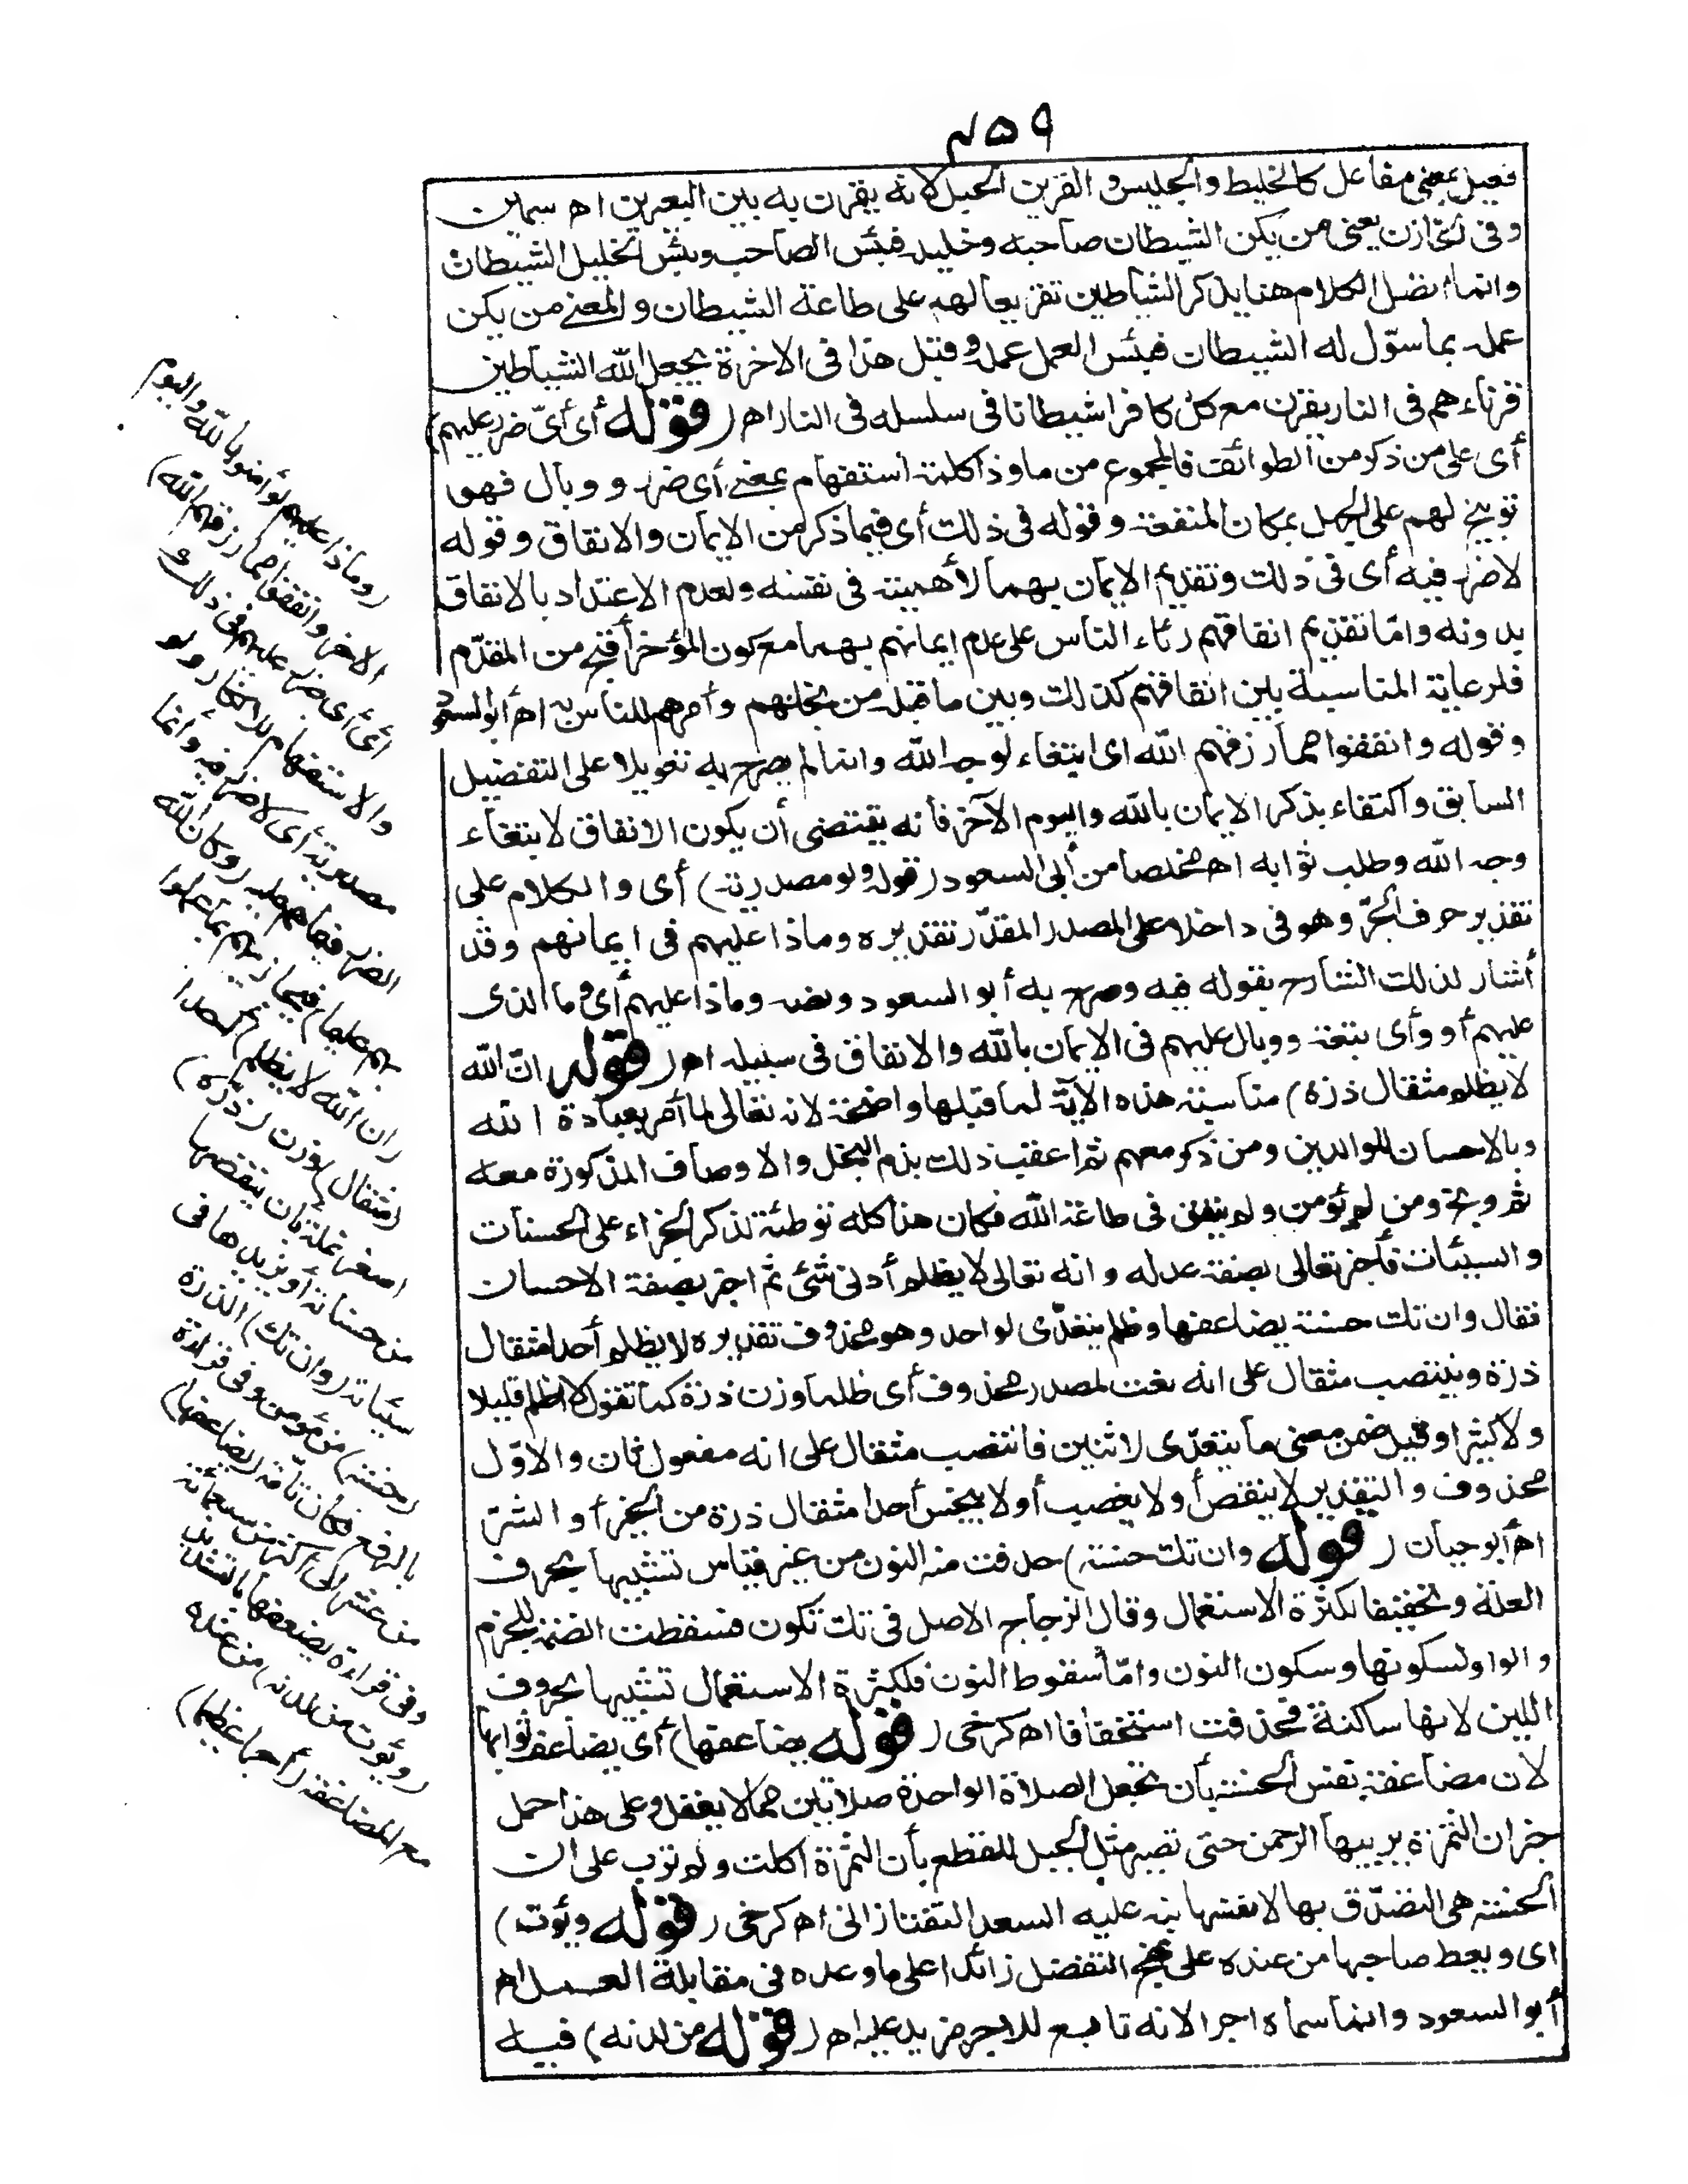 ٤٥٩
فعيل بمعنى مفاعل كالخليط والجليس و القرين الحبل لانه يقرن به بين البعيرين اه سمين
وفى الخازن يعنى من يكن الشيطان صاحبه وخليله فبئس الصاحب وبئس الخليل الشيطان
وانما اتصل الكلام هنا بذكر الشياطين تقريعا لهم على طاعة الشيطان و المعنى من يكن
عمله بما سوّل له الشيطان فبئس العمل عمله وقيل هذا فى الاخرة يجعل الله الشياطين
قرناءهم فى النار يقرن مع كل كافر شيطانا فى سلسله فى النار اه ( قوله أى أىّ ضرر عليهم)
أى على من ذكر من الطوائف فالمجموع من ما وذا كلمة استفهام بمعنى أى ضرر و وبال فهو
توبيخ لهم على الجهل بمكان المنفعة وقوله فى ذلك أى فيما ذكر من الايمان والانفاق وقوله
لاضرر فيه أى فى ذلك وتقديم الايمان بهما لأهميته فى نفسه ولعدم الاعتداد بالانفاق
بدونه وامّا تقديم انفاقهم رئاء الناس على عدم ايمانهم بهما مع كون المؤخر أقبح من المقدّم
فلرعاية المناسبة بين انفاقهم كذلك وبين ما قبله من بخلهم وأمرهم للناس به اه أبو السعود
وقوله وانفقوا مما رزقهم الله اى ابتغاء لوجه الله وانما لم يصرح به تعويلا على التفصيل
السابق واكتفاء بذكر الايمان بالله واليوم الآخر فأنه يقتضى أن يكون الانفاق لابتغاء
وجه الله وطلب ثوابه اه ملخصا من أبى السعود ( قوله ولو مصدرية ) أى والكلام على
تقدير حرف الجرّ وهو فى داخلا على المصدر المقدّر تقديره وماذا عليهم فى ايمانهم وقد
أشار لذلك الشارح بقوله فيه وصرح به أبو السعود ونصه وماذا عليهم أى وما الذى
عليهم أو وأى تبعة ووبال عليهم فى الايمان بالله والانفاق فى سبيله اه ( قوله انّ الله
لا يظلم مثقال ذرة) مناسبة هذه الاية لما قبلها واضحة لانه تعالى لما أمر بعبادة الله
وبالاحسان للوالدين ومن ذكر معهم ثم اعقب ذلك بذم البخل والاوصاف المذكورة معه
ثم وبخ ومن لم يؤمن ولم ينفق فى طاعة الله فكان هذا كله توطئة لذكر الجزاء على الحسنات
والسيئات فأخبر تعالى بصفة عدله وانه تعالى لا يظلم أدنى شئ ثم اخبر بصفة الاحسان
فقال وان تك حسنة يضاعفها وظلم يتعدّى لواحد وهو محذوف تقديره لا يظلم أحدا مثقال
ذرة وينتصب مثقال على انه نعت لمصدر محذوف أى ظلما وزن ذرة كما تقول لا اظلم قليلا
ولا كثيرا وقيل ضمن معنى ما يتعدّى لاثنين فانتصب مثقال على انه مفعول ثان والاوّل
محذوف والتقدير لا ينقص أو لا يغصب أو لا يبخس أحدا مثقال ذرة من الخير أو الشرّ
اه أبو حيان ( قوله وان تك حسنة) حذفت منه النون من غير قياس تشبيها بحرف
العلة و تخفيفا لكثرة الاستعمال وقال الزجاج الاصل فى تك تكون فسقطت الضمة للجزم
والواو لسكونها وسكون النون وامّا سقوط النون فلكثرة الاستعمال تشبيها بحروف
اللين لانها ساكنة فحذفت استخفافا اه كرخى ( قوله يضاعفها) أى يضاعف ثوابها
لان مضاعفة نفس الحسنة بأن تجعل الصلاة الواحدة صلاتين مما لا يعقل وعلى هذا حمل
خبر ان التمرة يربيها الرحمن حتى تصير مثل الجبل للقطع بأن التمرة اكلت ولم ترب على ان
الحسنة هى التصدّق بها لا نفسها نبه عليه السعد التفتازانى اه كرخى ( قوله ويؤت )
اى ويعط صاحبها من عنده على نهج التفضل زائدا على ما وعده فى مقابلة العمل اه
أبو السعود وانما سماه اجرا لانه تابع للاجر مزيد عليه اه ( قوله من لدنه) فيه
(وماذا عليهم لو أمنوا بالله واليوم
الاخر وانفقوا مما رزقهم الله)
أى أى ضرر عليهم فى ذلك
والاستفهام للانكار ولو
مصدرية أى لا ضرر فيه وأنما
الضرر فيما هم عليه (وكان الله
بهم عليما) فيجازيهم بما عملوا
(ان الله لا يظلم) أحدا
(مثقال) وزن (ذرة)
اصغر نملة بان ينقصها
من حسناته أو يزيدها فى
سيئاته (وان تك) الذرة
(حسنة) من مؤمن وفى قراءة
بالرفع فكان تامة (يضاعفها)
من عشر الى أكثر من سبعمائة
وفى قراءة يضعفها بالتشديد
(ويؤت من لدنه) من عنده
مع المضاعفة (أجرا عظيما)